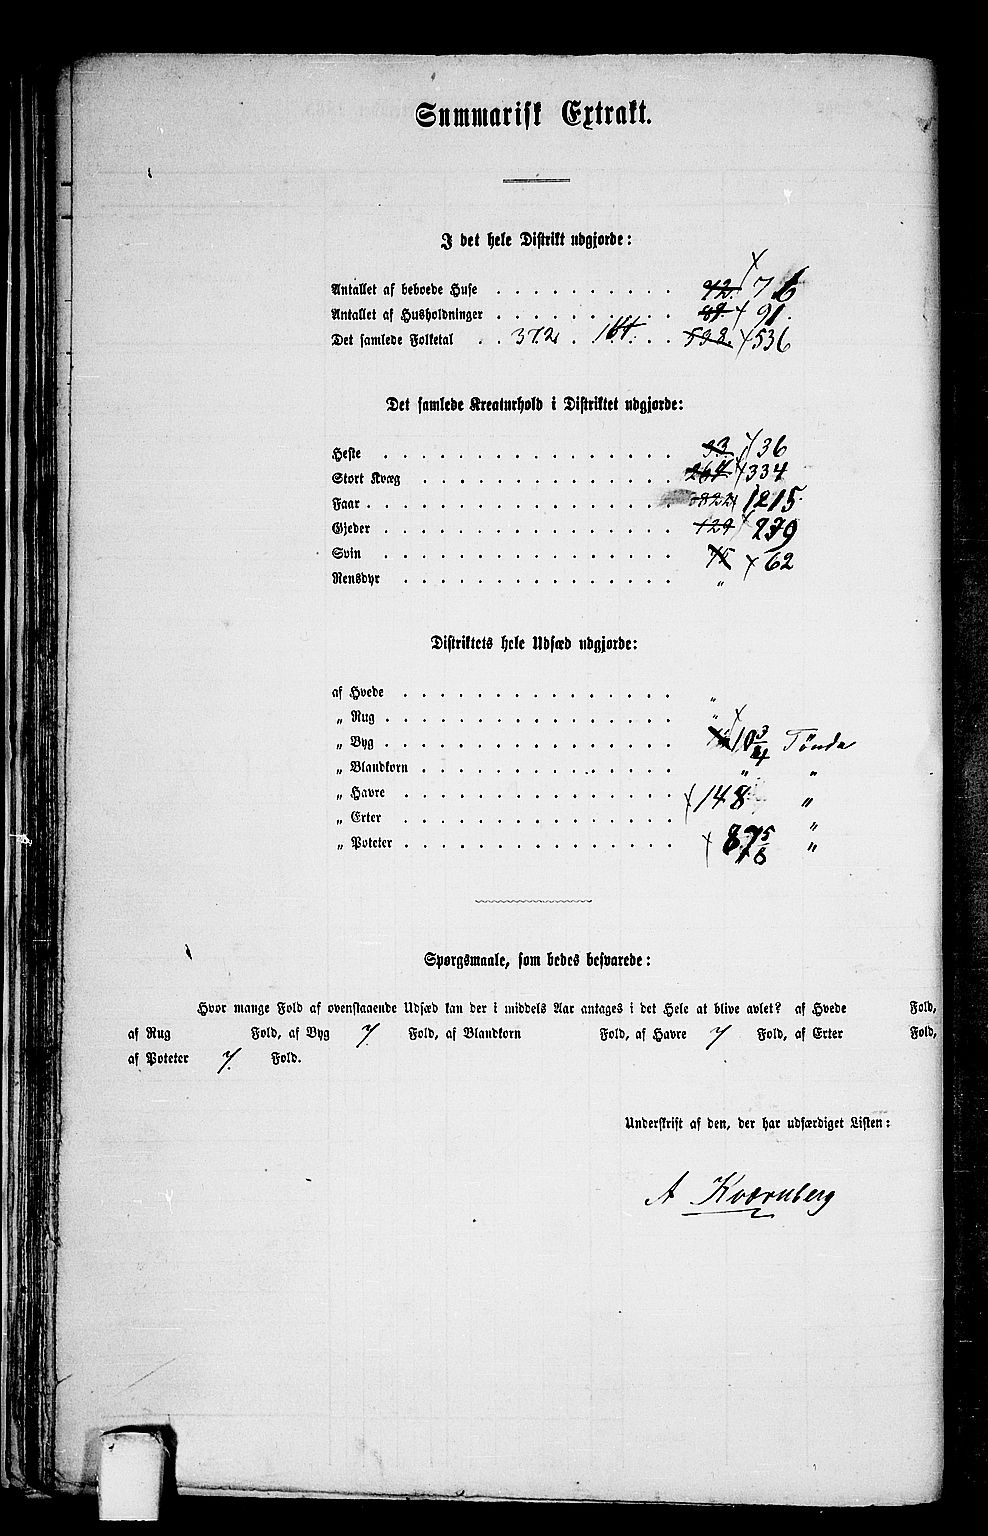 Summarisk Extrakt.
I det hele Distrikt udgjorde:
Antallet af beboede Huse . . . . . . . . . . 42. × 76
Antallet af Husholdninger . . . . . . . . . . 89. × 91.
Det samlede Folketal . . 372 . 164. . . 538. × 536
Det samlede Kreaturhold i Distriktet udgjorde:
Heste . . . . . . . . . . . . . . . 33. × 36
Stort Kvæg . . . . . . . . . . . . . 267. × 334
Faar . . . . . . . . . . . . . . . . 822 1215.
Gjeder . . . . . . . . . . . . . . . 129 × 279
Svin . . . . . . . . . . . . . . . × 62
Rensdyr . . . . . . . . . . . . . . „
Distriktets hele Udsæd udgjorde:
af Hvede . . . . . . . . . . . . . . „
„ Rug . . . . . . . . . . . . . . . „ ×
„ Byg . . . . . . . . . . . . . . . 10 3/4 Tønde
„ Blandkorn . . . . . . . . . . . . . „ „
„ Havre . . . . . . . . . . . . . . × 148 „
„ Erter . . . . . . . . . . . . . . „
„ Poteter . . . . . . . . . . . . . . × 87 5/8 „
Spørgsmaale, som bedes besvarede:
Hvor mange Fold af ovenstaaende Udsæd kan der i middels Aar antages i det Hele at blive avlet? af Hvede Fold,
af Rug Fold, af Byg 7. Fold, af Blandkorn Fold, af Havre 7 Fold, af Erter Fold,
af Poteter 7. Fold.
Underskrift af den, der har udfærdiget Listen:
A Kvernberg